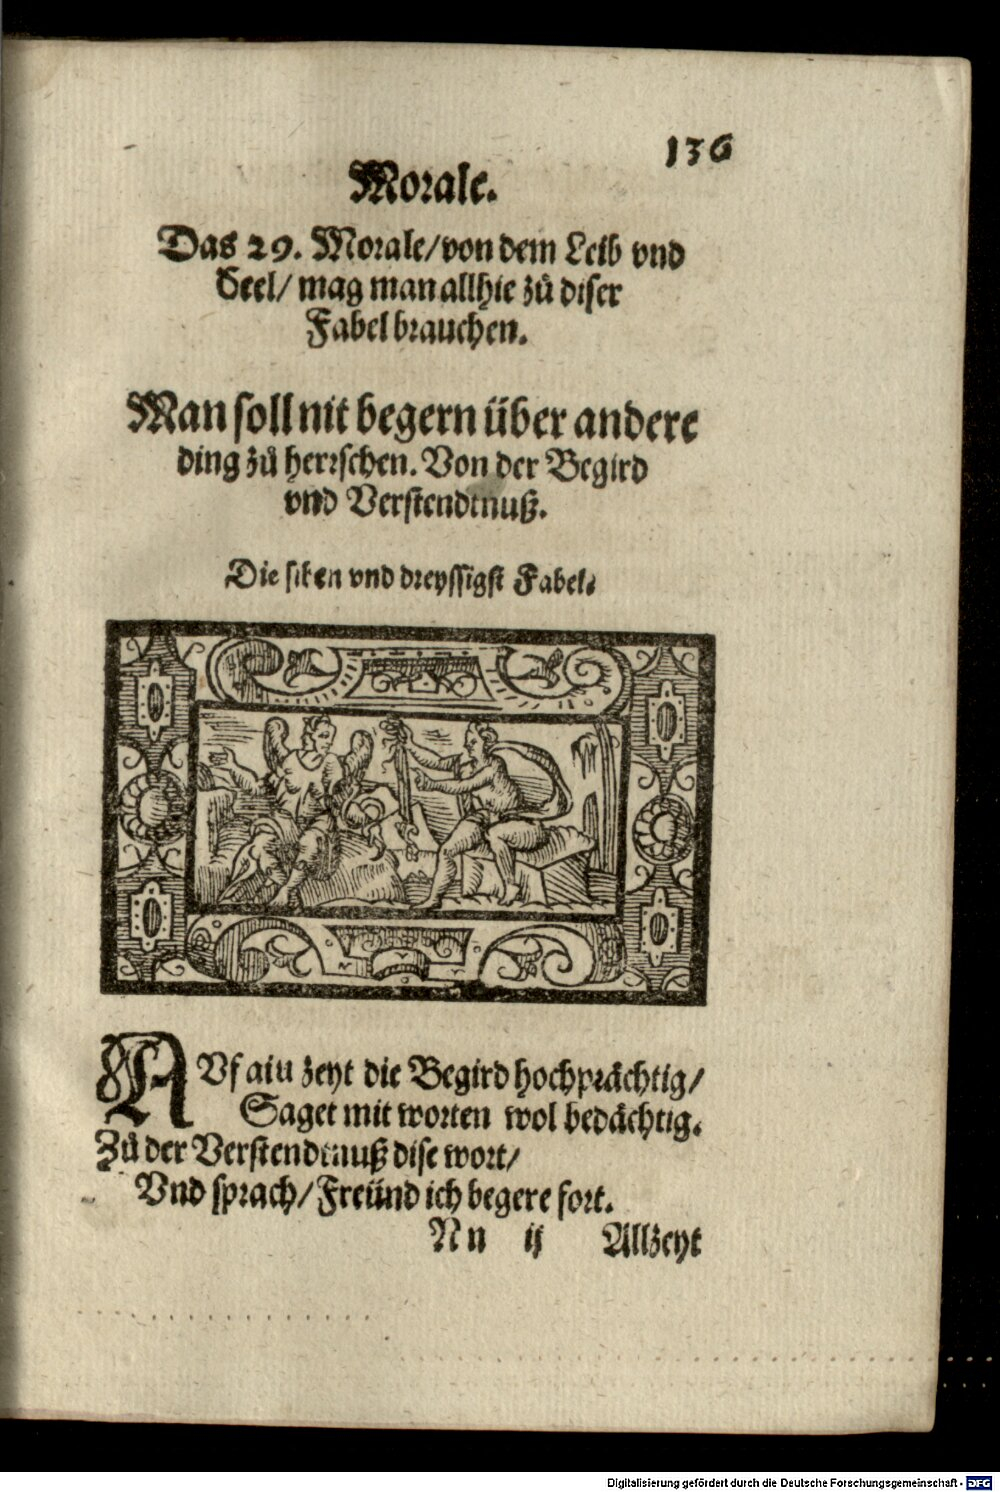 136
Morale.
Das 29. Morale/von dem Leib vnd
Seel/ mag man allhie zů diser
Fabel brauchen.
Man soll nit begern über andere
ding zů herrschen. Von der Begird
vnd Verstendtnuß.
Die siben vnd dreyssigst Fabel.
AVf ain zeyt die Begird hochprächtig/
Saget mit worten wol bedächtig.
Zů der Verstendtnuß dise wort/
Vnd sprach/ Freünd ich begere fort.
Nn ij Allzeyt
Digitalisierung gefördert durch die Deutsche Forschungsgemeinschaft - DFG